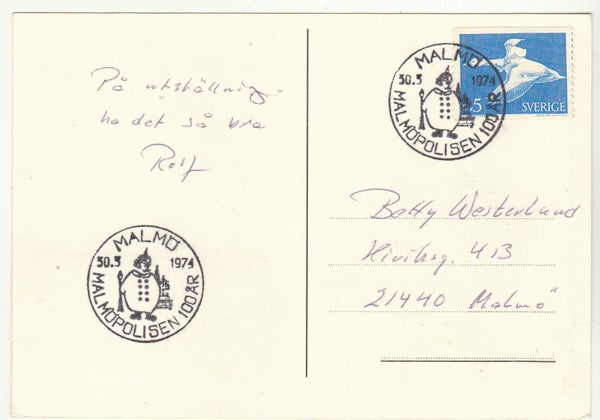 På utställning.
ha det så bra
Rolf
MALMÖ
30.3 1974
MALMÖPOLISEN 100 ÅR
MALMÖ
30.3 1974
MALMÖPOLISEN 100 ÅR
75 SVERIGE
Betty Westerlund
4B
21440 Malmö